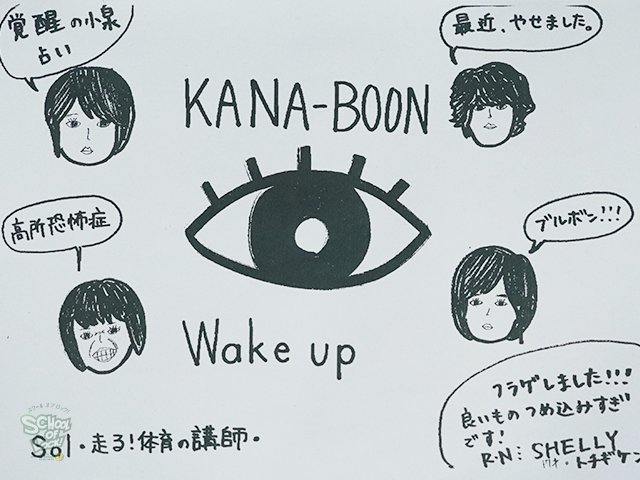 覚醒の小泉
占い
最近、やせました。
KANA-BOON
高所恐怖症
ブルボン!!!
Wake up
フラゲしました!!!
良いものつめ込みすぎ
です!
R・N: SHELLY
トチギケン
SCHOOL
OF
Sol・走る!体育の講師・